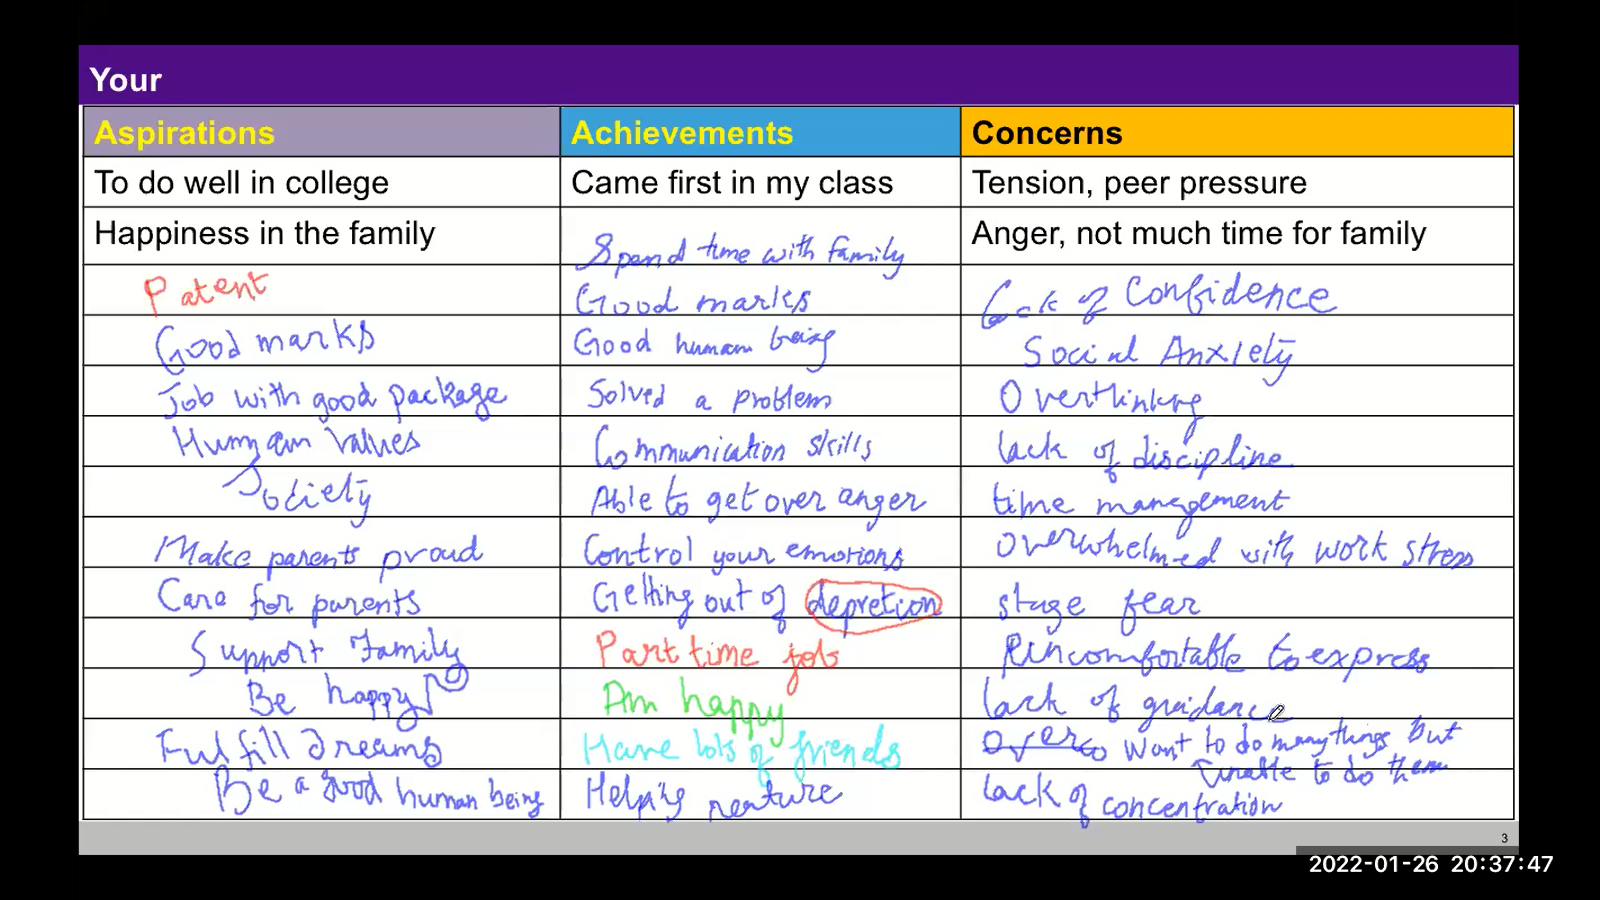 Your
Aspirations Achievements Concerns
To do well in college Came first in my class Tension, peer pressure
Happiness in the family Spend time with family Anger, not much time for family
Patent Good marks Lack of Confidence
Good marks Good human being Social Anxiety
Job with good package Solved a problem Overthinking
Human Values Communication skills lack of discipline
Society Able to get over anger time management
Make parents proud Control your emotions overwhelmed with work stress
Care for parents Getting out of depretion stage fear
Support Family Part time job to express
Be happy Am happy lack of guidance
Fulfill Dreams Have lots of friends want to do many things but
unable to do them
Be a good human being Helping lack of concentration
3
2022-01-26 20:37:47